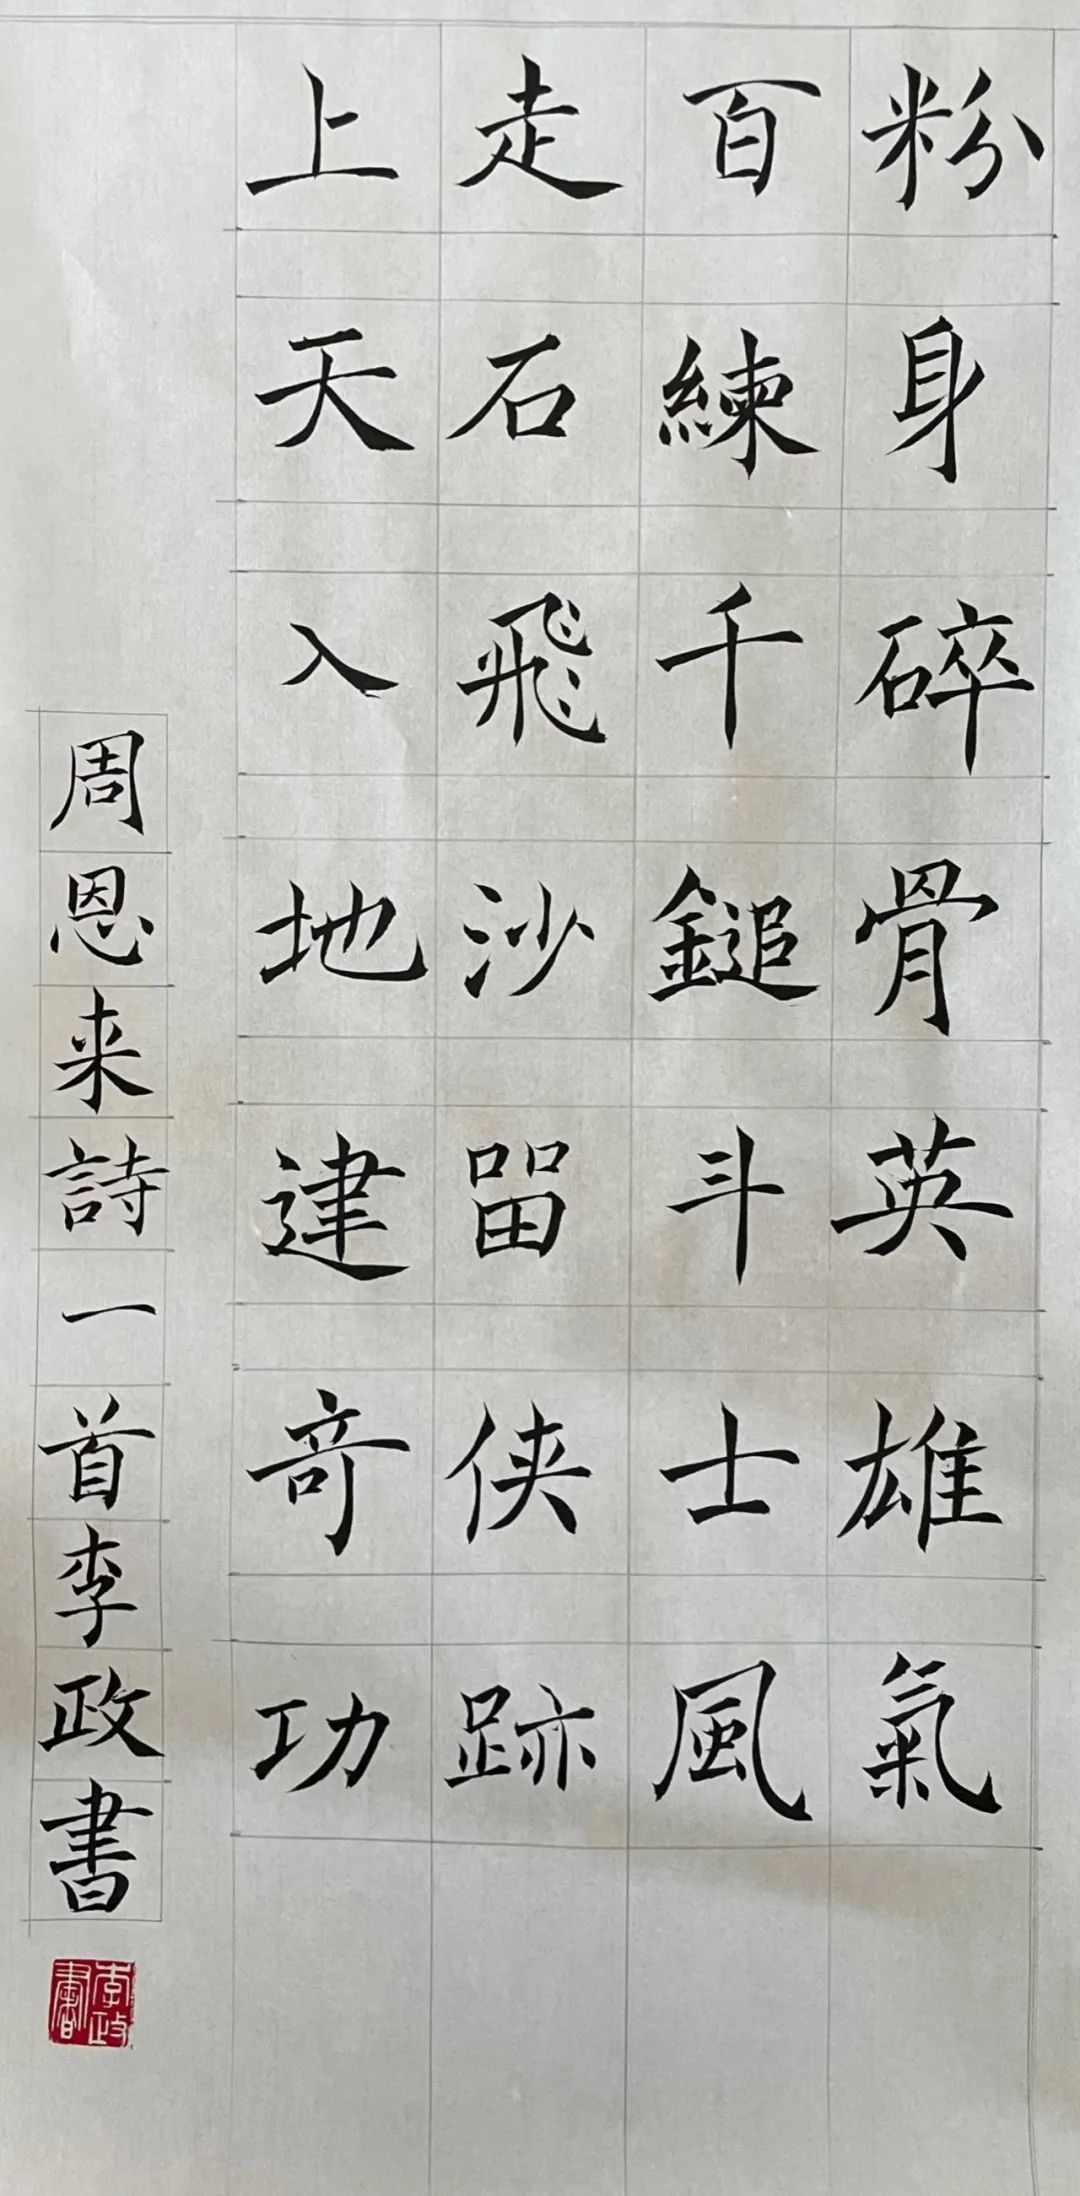 粉身碎骨英雄氣
百練千鎚斗士風
走石飛沙畱侠跡
上天入地建奇功
周恩来詩一首李政書
李政書